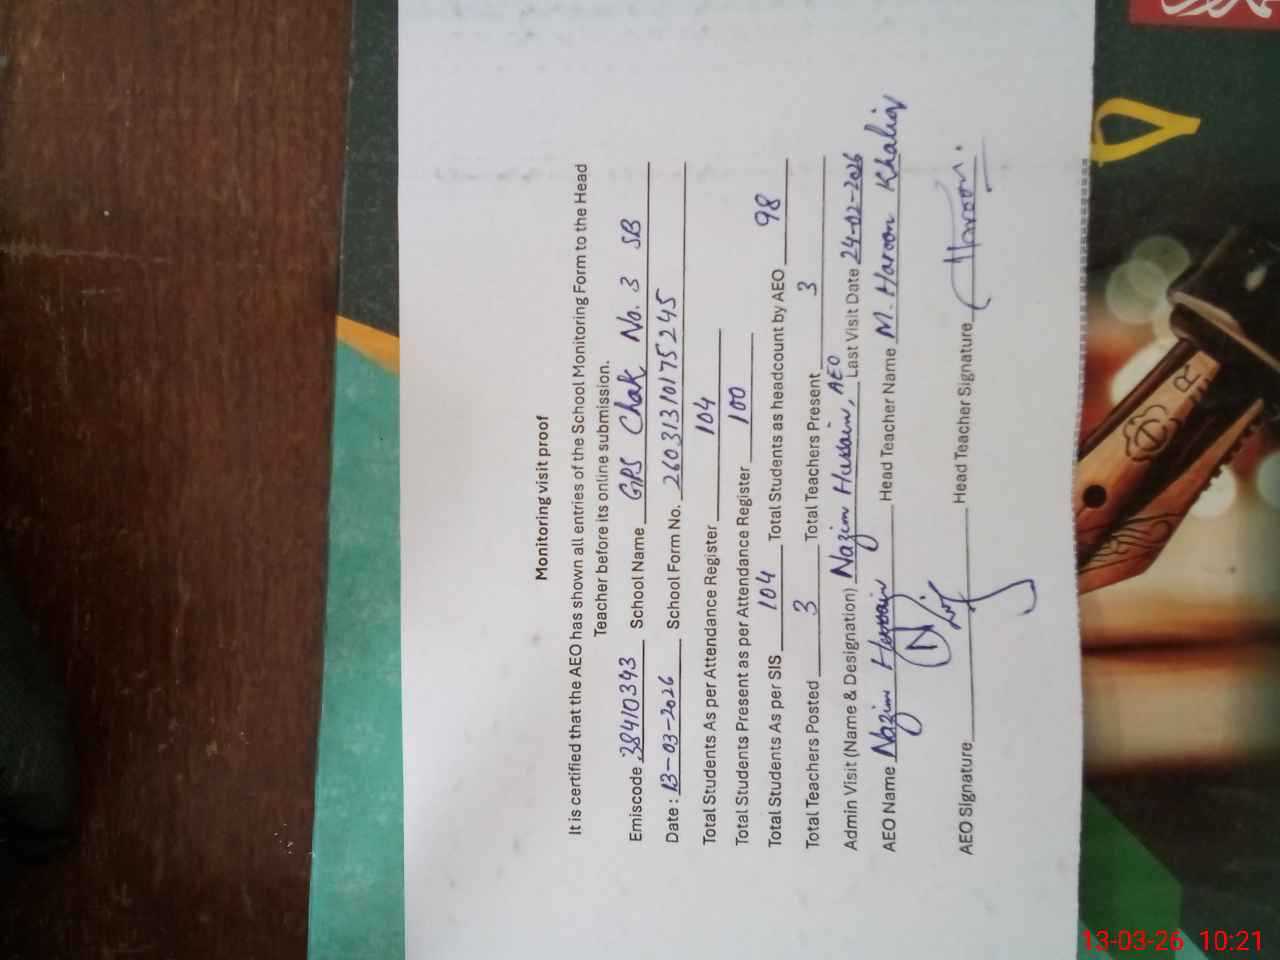 Monitoring visit proof
It is certified that the AEO has shown all entries of the School Monitoring Form to the Head
Teacher before its online submission.
Emiscode 38410393 School Name GPS Chak No. 3 SB
Date: 13-03-2026 School Form No. 26031310175245
Total Students As per Attendance Register 104
Total Students Present as per Attendance Register 100
Total Students As per SIS 104 Total Students as headcount by AEO 98
Total Teachers Posted 3 Total Teachers Present 3
Admin Visit (Name & Designation) Nazim Hussain, AEO Last Visit Date 24-02-2026
AEO Name Nazim Hussain Head Teacher Name M. Haroon Khaliq
AEO Signature Head Teacher Signature Haroon.
13-03-26 10:21